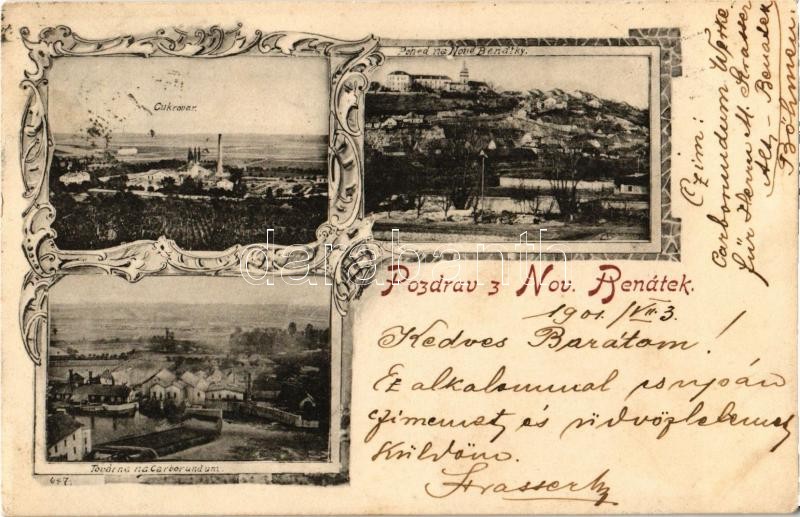 Cukrovar.
Pohled na Nové Benátky.
Pozdrav z Nov. Benátek.
Továrna na Carborundum.
647.
1901./VII. 3.
Kedves Barátom!
Ez alkalommal csupán
czimemet és üdvözletemet
küldöm.
Czim:
Carborundum Werke
für Herrn M. Strasser
Alt-Benatek
Böhmen.
darabanth